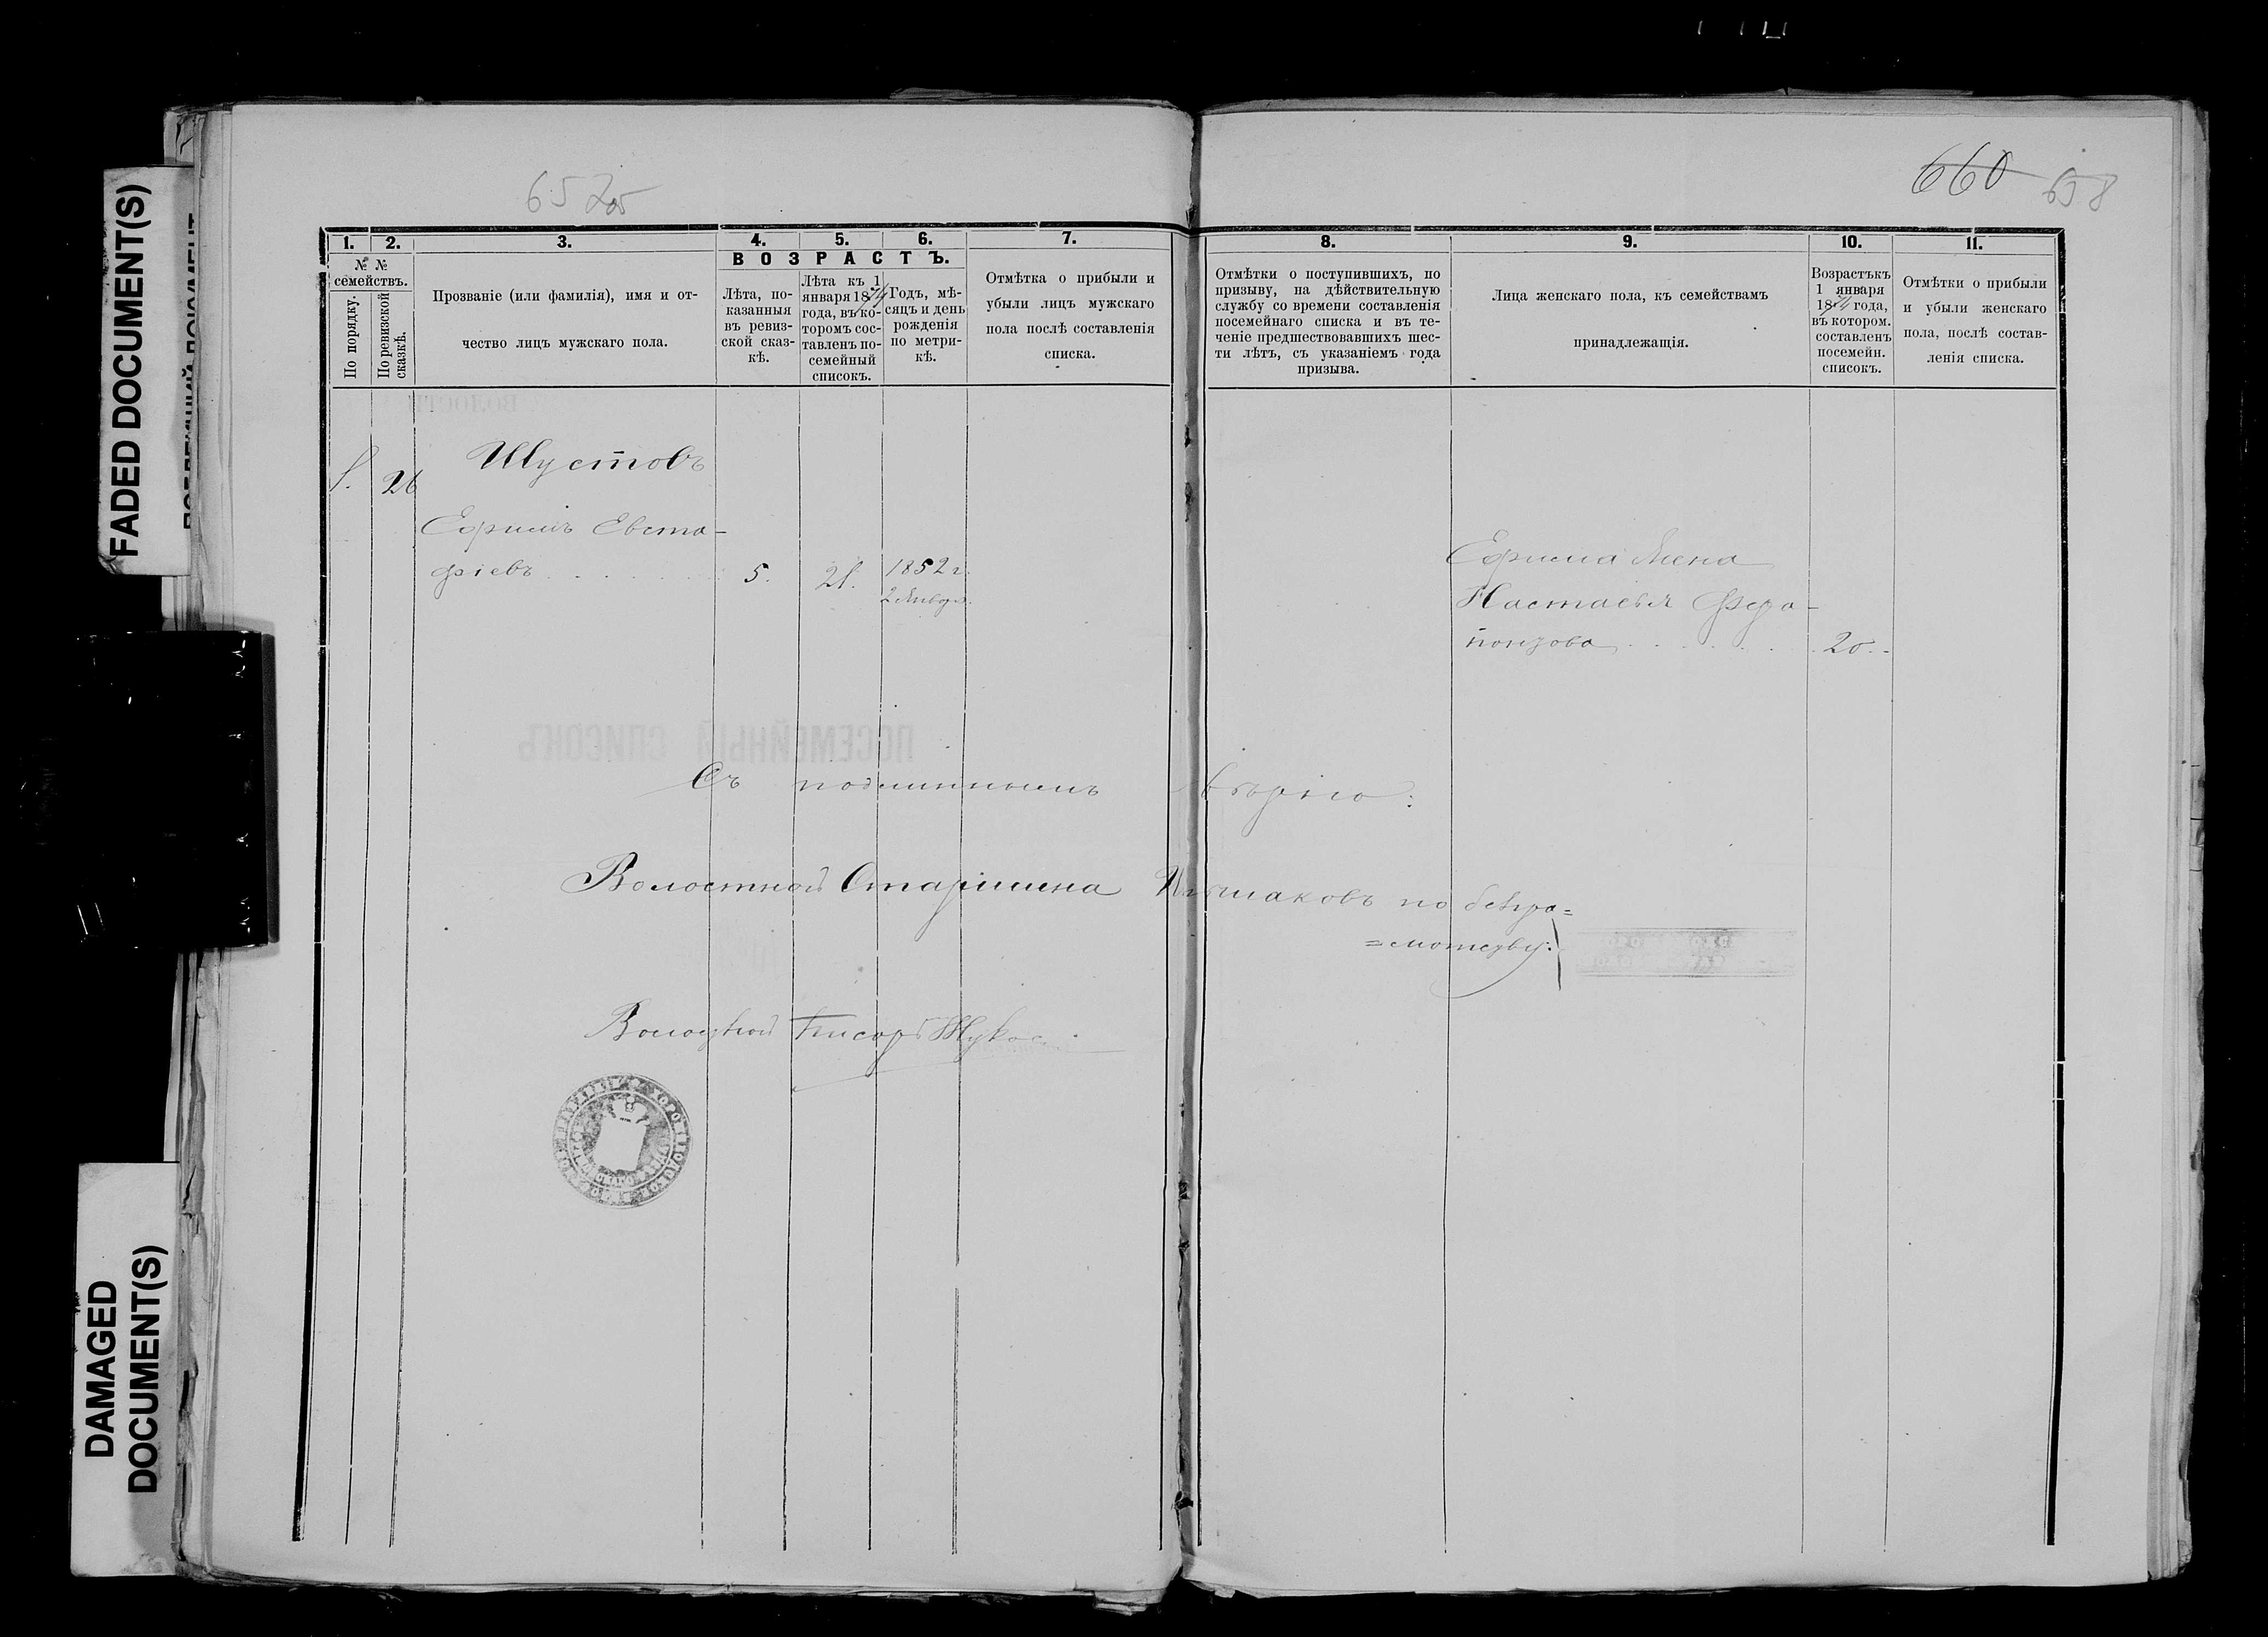 FADED DOCUMENT(S)
DAMAGED
DOCUMENT(S)
657об
660 658
1. 2. 3. 4. 5. 6. 7.
№ №
семействъ.
По порядку.
По ревизской
сказкѣ.
Прозваніе (или фамилія), имя и от-
чество лицъ мужскаго пола.
ВОЗРАСТЪ.
Лѣта, по-
казанныя
въ ревиз-
ской сказ-
кѣ.
Лѣта къ 1
января 1874
года, въ ко-
торомъ сос-
тавленъ по-
семейный
списокъ.
Годъ, мѣ-
сяцъ и день
рожденія
по метри-
кѣ.
Отмѣтка о прибыли и
убыли лицъ мужскаго
пола послѣ составленія
списка.
8. 9. 10. 11.
Отмѣтки о поступившихъ, по
призыву, на дѣйствительную
службу со времени составленія
посемейнаго списка и въ те-
ченіе предшествовавшихъ шес-
ти лѣтъ, съ указаніемъ года
призыва.
Лица женскаго пола, къ семействамъ
принадлежащія.
Возрастъ къ
1 января
1874 года,
въ котором.
составленъ
посемейн.
списокъ.
Отмѣтки о прибыли
и убыли женскаго
пола, послѣ состав-
ленія списка.
1. 26 Шустовъ
Ефимъ Евста-
фіевъ 5. 21. 1852 г.
2 Января
Ефима жена
Настасья Фера-
понтова 20.
Съ подлиннымъ вѣрно:
Волостной Старшина по безгра=
=мотству:
Волостной Писарь